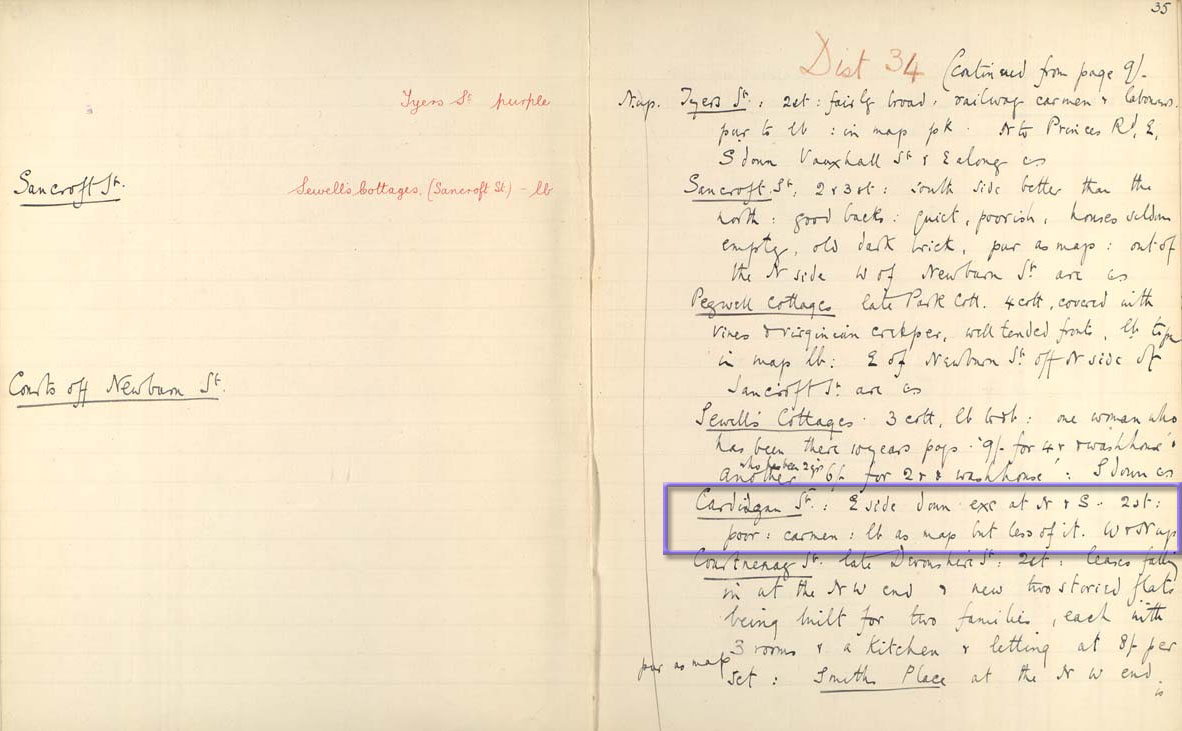 Tyers St purple
Sancroft St.
Sewell's Cottages. (Sancroft St.) - lb
Courts off Newburn St.
35
Dist 34 (Continued from page 9/-
N. up. Tyers St. : 2st : fairly broad, railway carmen & labourers.
pur to lb : in map pk. N to Princes Rd, E,
S down Vauxhall St & E along as
Sancroft St, 2 & 3 st : south side better than the
north : good backs : quiet, poorish, houses seldom
empty, old dark brick, pur as map : out of
the N side W of Newburn St are as
Pegwell Cottages late Park Cott. 4 cott, covered with
vines & virginian creeper, well tended front, lb to pur
in map lb : E of Newburn St off N side of
Sancroft St. are as
Sewell's Cottages. 3 cott, lb : one woman who
has been there 10 years pays '9/- for 4 r & washhouse'.
who has been 2 yrs
another 6/- for 2 r & washhouse' : S down as
Cardigan St. : E side down exc at N & S. 2st :
poor : carmen : lb as map but less of it. W & N up
Courtnenay St. late Devonshire St : 2st : leases falling
in at the N W end & new two storied flats
being built for two families, each with
3 rooms & a kitchen & letting at 8/- per
pur as map
set : Smiths Place at the N W end
is